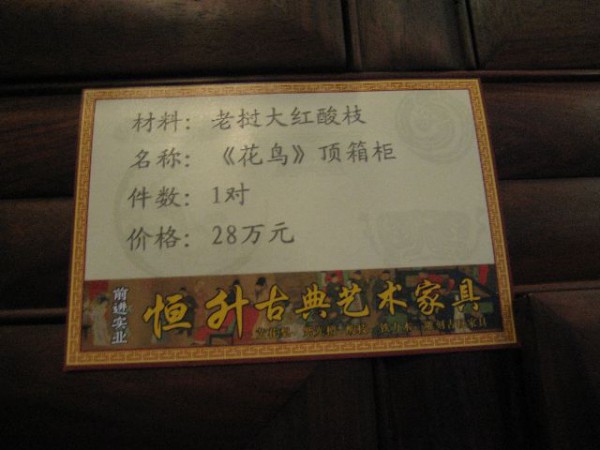 材料：老挝大红酸枝
名称：《花鸟》顶箱柜
件数：1对
价格：28万元
前进实业
恒升古典艺术家具